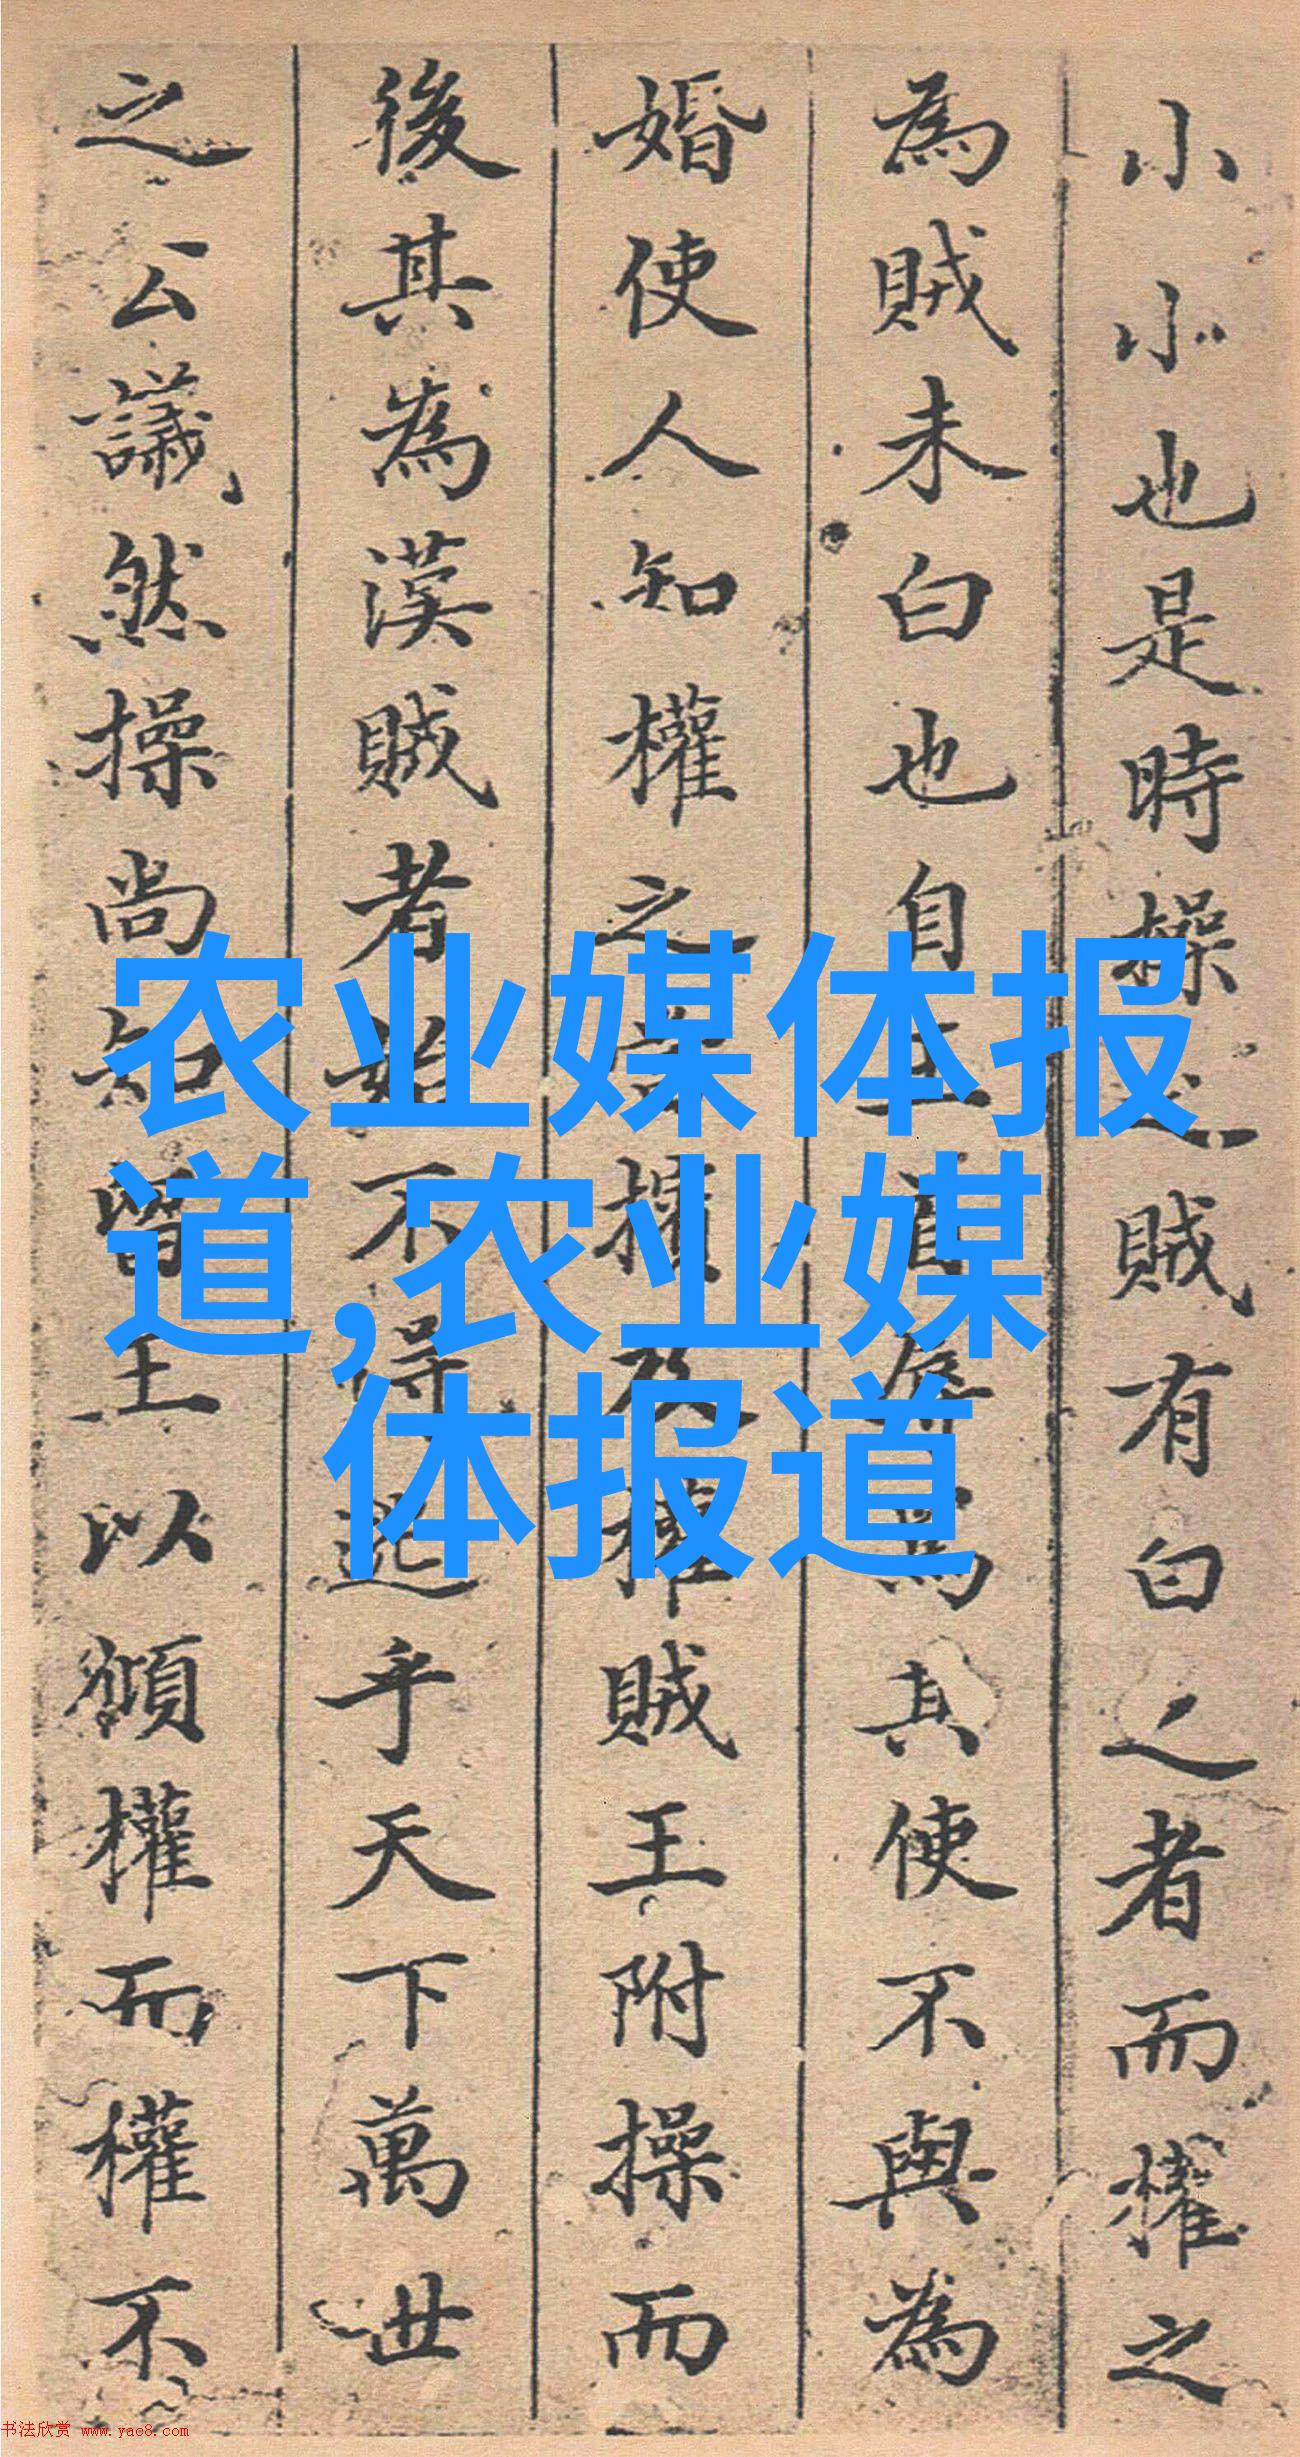 小小也是時操之賊有白之者而權之
為賊未白也自其使不與為
婚使人知權之賊王附操而
後其為漢賊者始不得逃乎天下萬世
之公議然操尚知以權而權不
农业媒体报
道,农业媒
体报道
书法欣赏 www.yac8.com